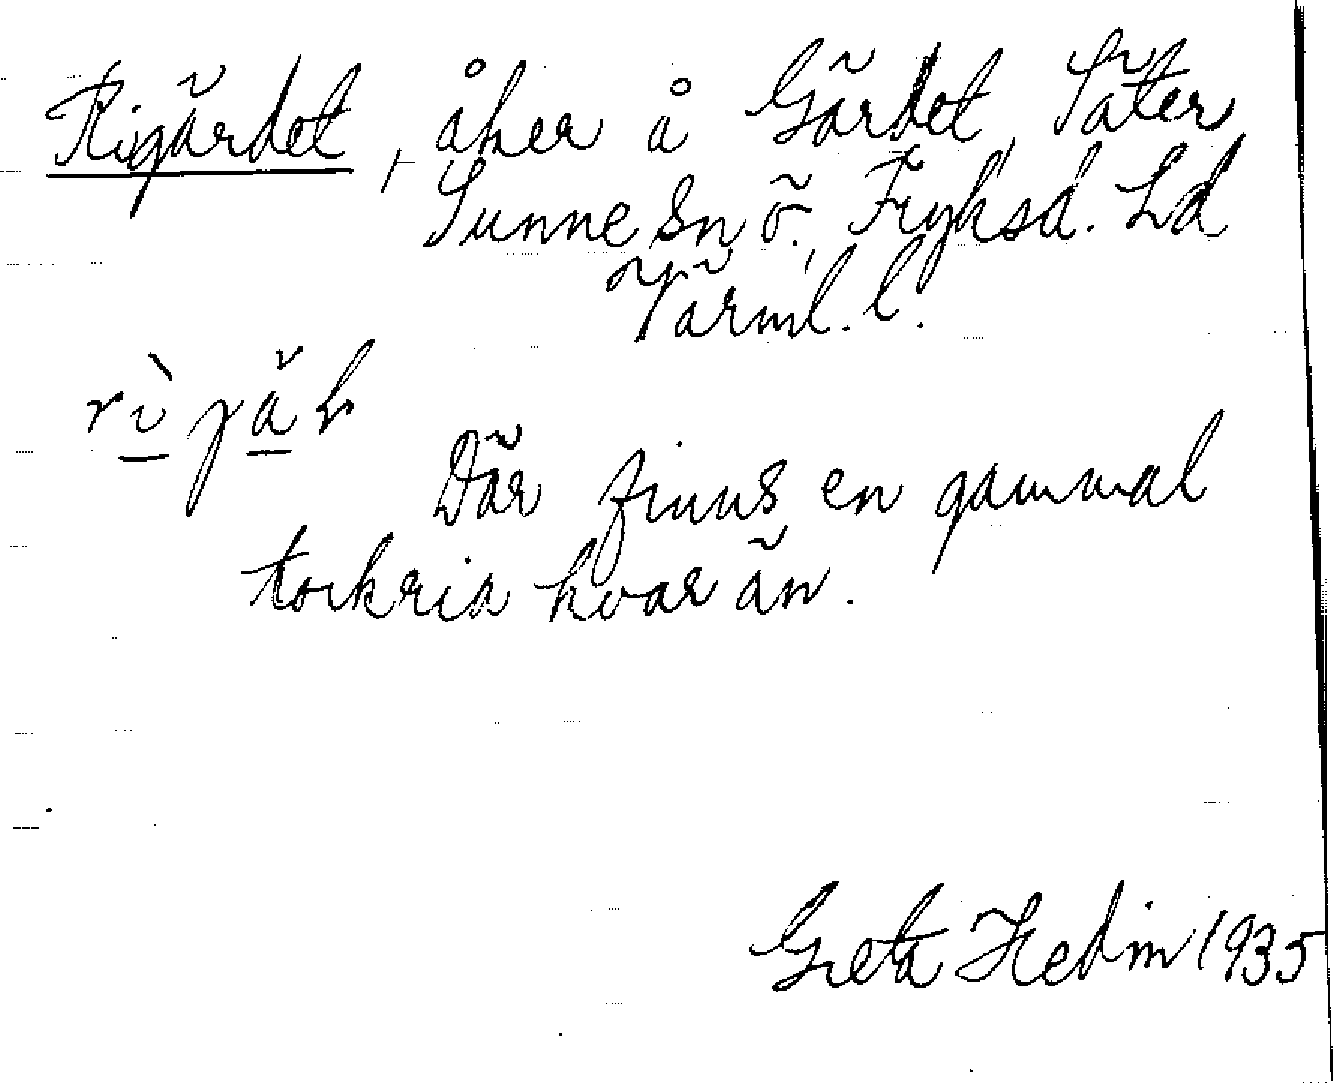 Rigärdet, åker å Gärdet, Säter
Sunne Sn ö., Fryksd. Hd
Värml. l.
Där finns en gammal
torkria kvar än.
Greta Hedin 1935